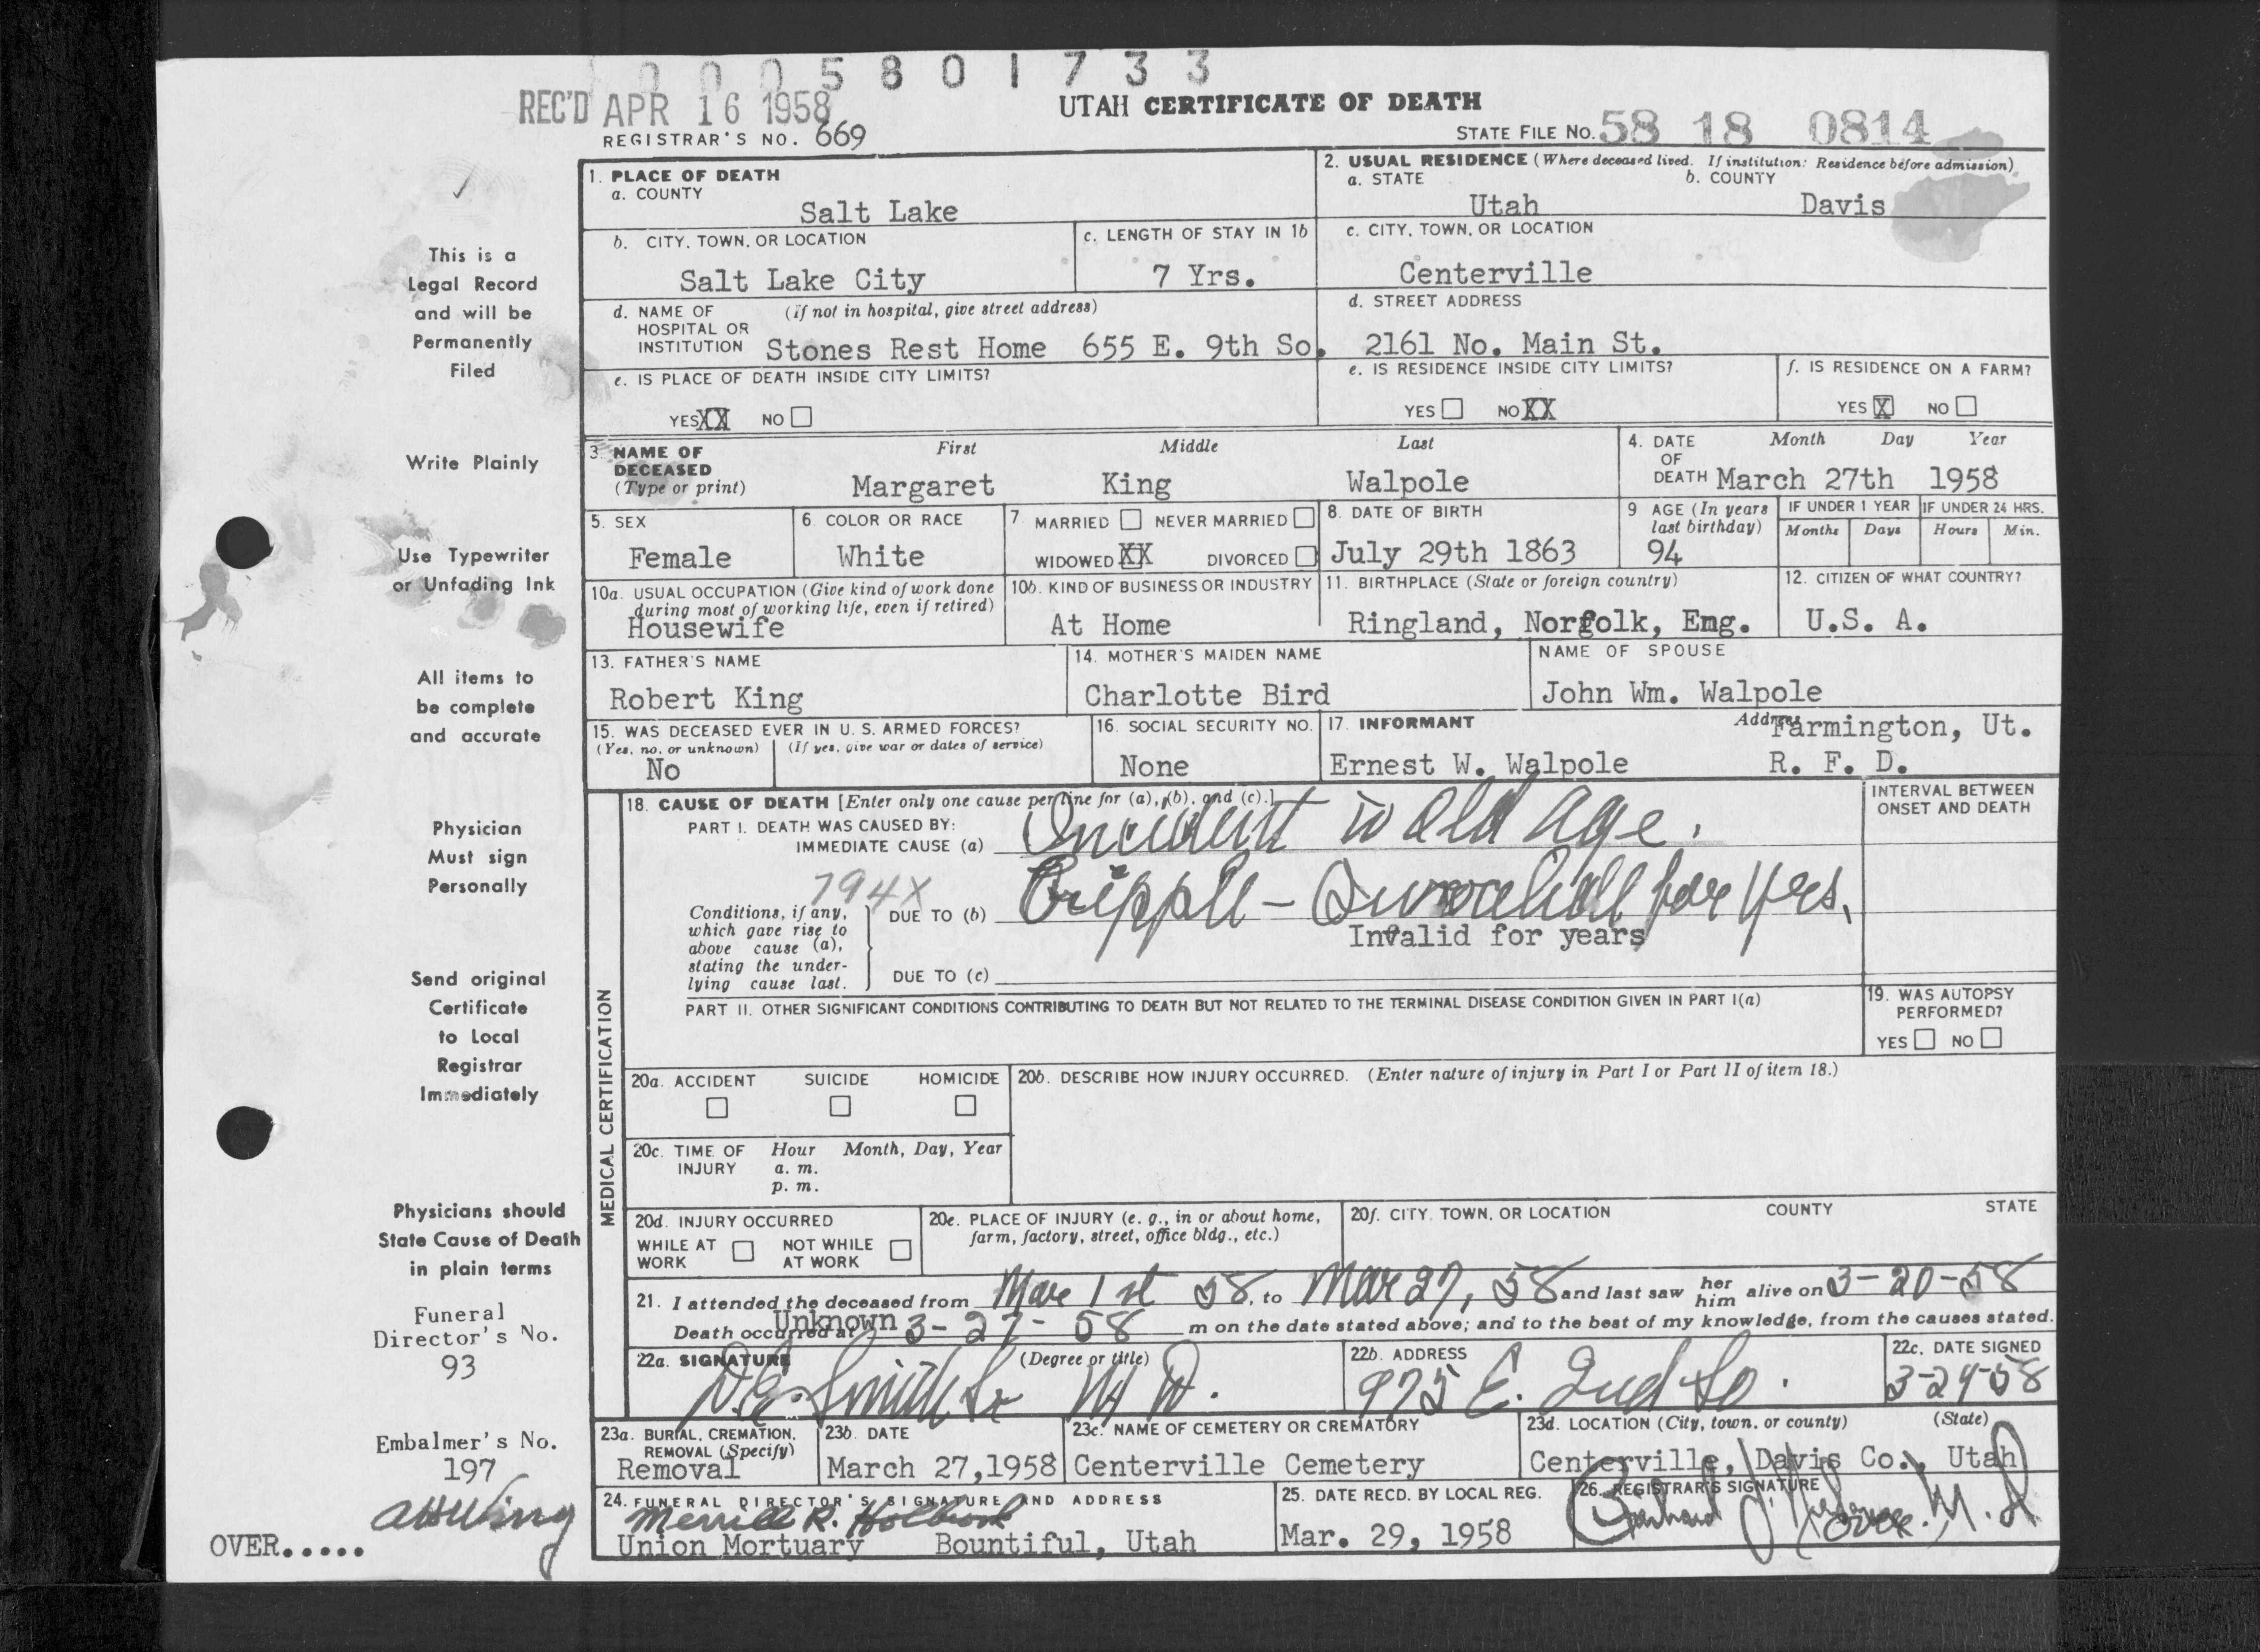 0 0 0 5 8 0 1 7 3 3
REC'D APR 16 1958
UTAH CERTIFICATE OF DEATH
REGISTRAR'S NO. 669
STATE FILE NO. 58 18 0814
1. PLACE OF DEATH
a. COUNTY
Salt Lake
2. USUAL RESIDENCE (Where deceased lived. If institution: Residence before admission)
a. STATE b. COUNTY
Utah Davis
b. CITY, TOWN, OR LOCATION
Salt Lake City
c. LENGTH OF STAY IN 1b
7 Yrs.
c. CITY, TOWN, OR LOCATION
Centerville
d. NAME OF HOSPITAL OR INSTITUTION (If not in hospital, give street address)
Stones Rest Home 655 E. 9th So.
d. STREET ADDRESS
2161 No. Main St.
e. IS PLACE OF DEATH INSIDE CITY LIMITS?
YES XX NO
e. IS RESIDENCE INSIDE CITY LIMITS?
YES NO XX
f. IS RESIDENCE ON A FARM?
YES X NO
3. NAME OF DECEASED (Type or print)
First Middle Last
Margaret King Walpole
4. DATE OF DEATH Month Day Year
March 27th 1958
5. SEX
Female
6. COLOR OR RACE
White
7. MARRIED NEVER MARRIED
WIDOWED XX DIVORCED
8. DATE OF BIRTH
July 29th 1863
9 AGE (In years last birthday)
94
IF UNDER 1 YEAR
Months Days
IF UNDER 24 HRS.
Hours Min.
10a. USUAL OCCUPATION (Give kind of work done during most of working life, even if retired)
Housewife
10b. KIND OF BUSINESS OR INDUSTRY
At Home
11. BIRTHPLACE (State or foreign country)
Ringland, Norfolk, Eng.
12. CITIZEN OF WHAT COUNTRY?
U.S. A.
13. FATHER'S NAME
Robert King
14. MOTHER'S MAIDEN NAME
Charlotte Bird
NAME OF SPOUSE
John Wm. Walpole
15. WAS DECEASED EVER IN U. S. ARMED FORCES?
(Yes, no, or unknown) (If yes, give war or dates of service)
No
16. SOCIAL SECURITY NO.
None
17. INFORMANT Address
Ernest W. Walpole
Farmington, Ut.
R. F. D.
MEDICAL CERTIFICATION
18. CAUSE OF DEATH [Enter only one cause per line for (a), (b), and (c).]
PART I. DEATH WAS CAUSED BY:
IMMEDIATE CAUSE (a) Incident to Old Age.
INTERVAL BETWEEN ONSET AND DEATH
794X
Conditions, if any, which gave rise to above cause (a), stating the underlying cause last.
DUE TO (b) Cripple - for yrs.
Invalid for years
DUE TO (c)
PART II. OTHER SIGNIFICANT CONDITIONS CONTRIBUTING TO DEATH BUT NOT RELATED TO THE TERMINAL DISEASE CONDITION GIVEN IN PART I(a)
19. WAS AUTOPSY PERFORMED?
YES NO
20a. ACCIDENT SUICIDE HOMICIDE
20b. DESCRIBE HOW INJURY OCCURRED. (Enter nature of injury in Part I or Part II of item 18.)
20c. TIME OF INJURY Hour Month, Day, Year
a. m.
p. m.
20d. INJURY OCCURRED
WHILE AT WORK NOT WHILE AT WORK
20e. PLACE OF INJURY (e. g., in or about home, farm, factory, street, office bldg., etc.)
20f. CITY, TOWN, OR LOCATION COUNTY STATE
21. I attended the deceased from Mar 1st 58, to Mar 27, 58 and last saw her him alive on 3-20-58
Death occurred at Unknown 3-27-58 m on the date stated above; and to the best of my knowledge, from the causes stated.
22a. SIGNATURE (Degree or title)
D.E. Smith Sr M D.
22b. ADDRESS
975 E. 2nd So.
22c. DATE SIGNED
3-29-58
23a. BURIAL, CREMATION, REMOVAL (Specify)
Removal
23b. DATE
March 27,1958
23c. NAME OF CEMETERY OR CREMATORY
Centerville Cemetery
23d. LOCATION (City, town, or county) (State)
Centerville, Davis Co., Utah
24. FUNERAL DIRECTOR'S SIGNATURE AND ADDRESS
Merrill R. Holbrook
Union Mortuary Bountiful, Utah
25. DATE RECD. BY LOCAL REG.
Mar. 29, 1958
26. REGISTRAR'S SIGNATURE
M. D
This is a
Legal Record
and will be
Permanently
Filed
Write Plainly
Use Typewriter
or Unfading Ink
All items to
be complete
and accurate
Physician
Must sign
Personally
Send original
Certificate
to Local
Registrar
Immediately
Physicians should
State Cause of Death
in plain terms
Funeral
Director's No.
93
Embalmer's No.
197
OVER.....